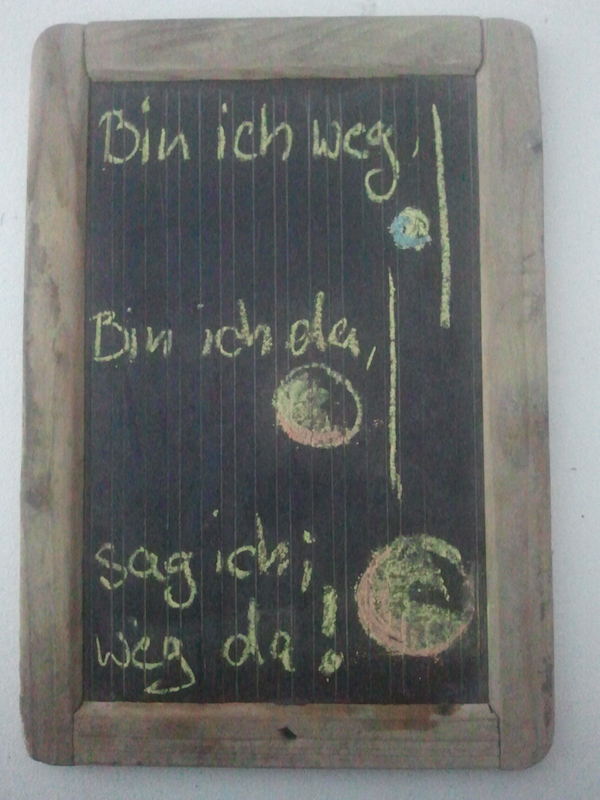 Bin ich weg,
Bin ich da,
sag ich;
weg da!